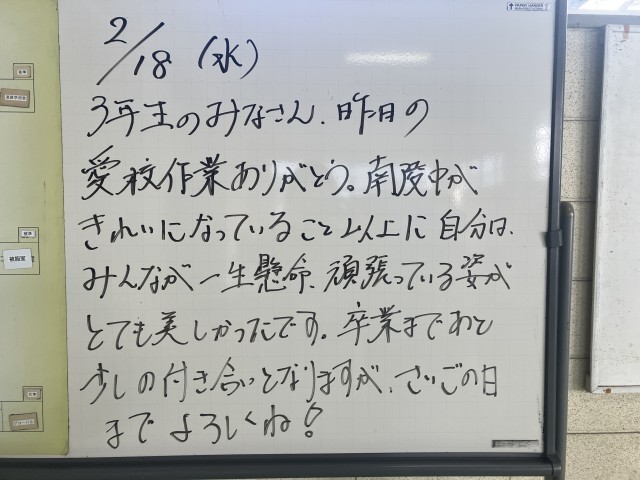 2/18(水)
3年生のみなさん、昨日の
愛校作業ありがとう。南陵中が
きれいになっていること以上に自分は、
みんなが一生懸命、頑張っている姿が
とても美しかったです。卒業まであと
少しの付き合いとなりますが、さいごの日
までよろしくね!
被服室